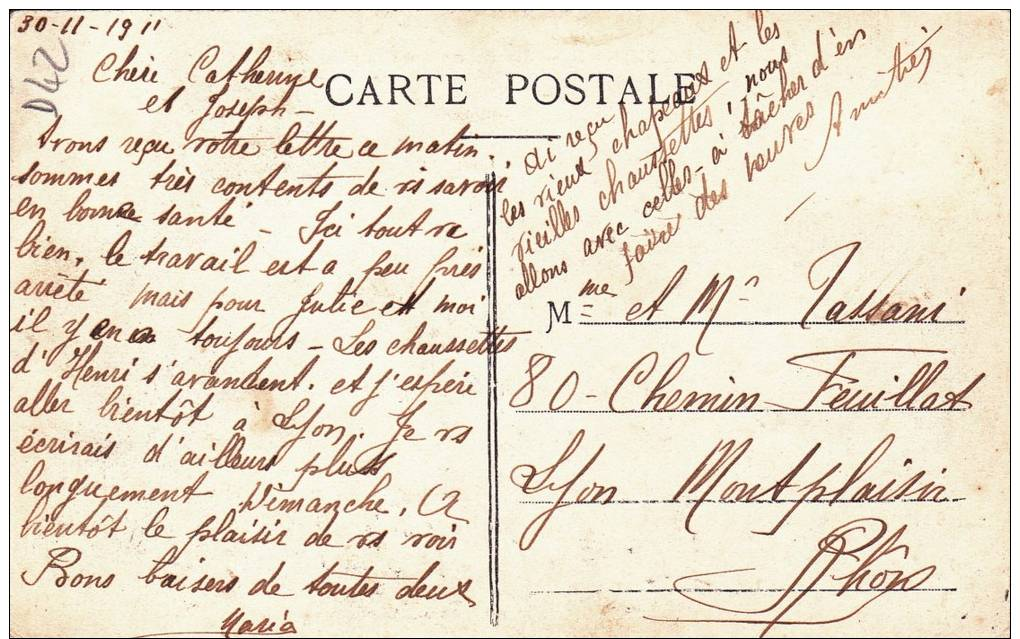 30-11-1911
D42
Chère Catherine
et Joseph -
Avons reçu votre lettre ce matin.
sommes très contents de vs savoir
en bonne santé - Ici tout va
bien, le travail est a peu près
arrêté mais pour Julie et moi
il y en a toujours - Les chaussettes
d'Henri s'avancent. et j'espère
aller bientôt à Lyon. Je vs
écrirais d'ailleurs plus
longuement Dimanche. A
bientôt le plaisir de vs voir
Bons baisers de toutes deux
Maria
CARTE POSTALE
Ai reçu
les vieux chapeaux et les
vieilles chaussettes, nous
allons avec celles-à tâcher d'en
faire des neuves Amitiés
Mme et Mr Tassani
80 - Chemin Feuillat
Lyon Montplaisir
Rhône